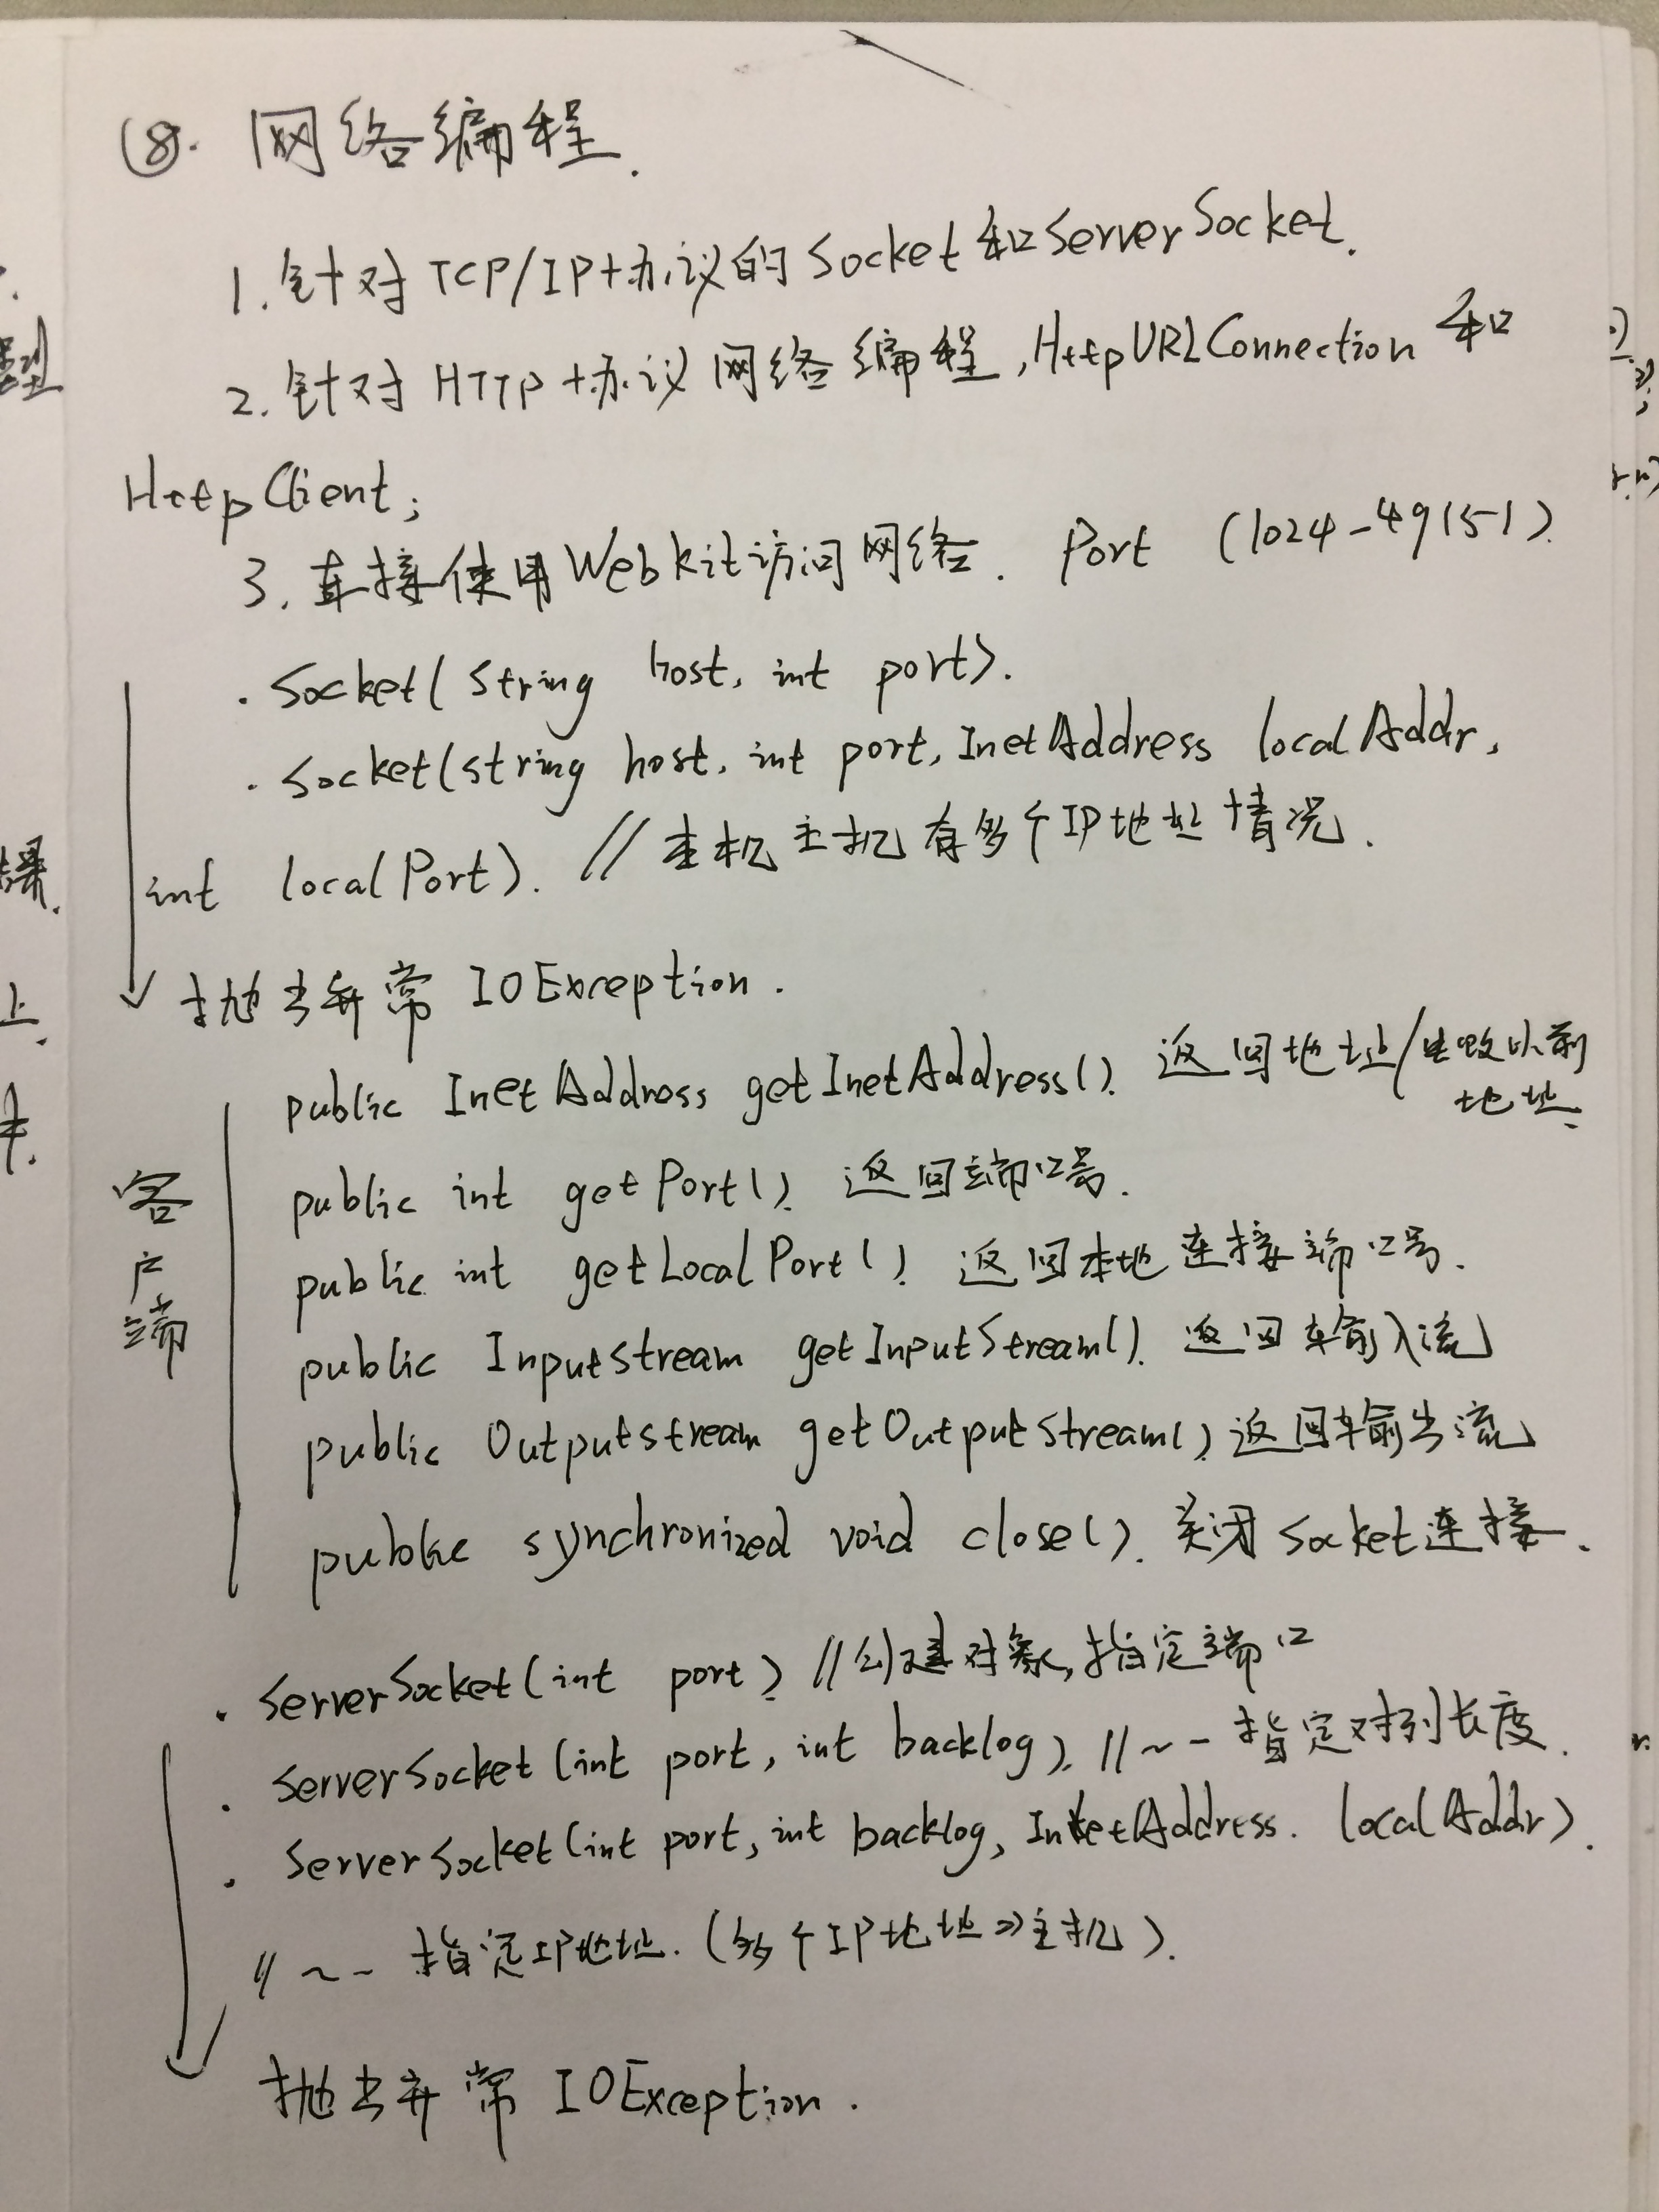 ⑧. 网络编程.
1. 针对TCP/IP协议的Socket和ServerSocket.
2. 针对HTTP协议网络编程,HttpURLConnection和
HttpClient;
3. 直接使用WebKit访问网络. Port (1024-49151).
· Socket(String host, int port).
· Socket(string host, int port, InetAddress localAddr,
int localPort). // 本机主机有多个IP地址情况.
抛出异常 IOException.
public InetAddress getInetAddress(). 返回地址/失败以前
地址.
客户端
public int getPort(). 返回端口号.
public int getLocalPort(). 返回本地连接端口号.
public Inputstream getInputStream(). 返回输入流
public Outputstream getOutputStream(). 返回输出流
public synchronized void close(). 关闭Socket连接.
· ServerSocket(int port). //创建对象,指定端口
· ServerSocket(int port, int backlog). //~- 指定对列长度.
· ServerSocket(int port, int backlog, InetAddress. localAddr).
// ~- 指定IP地址. (多个IP地址的主机).
抛出异常 IOException.